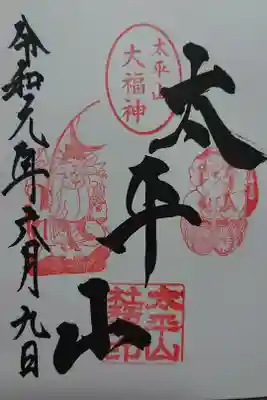 太平山
大福神
太平山
令和元年六月九日
太平山
社務所印